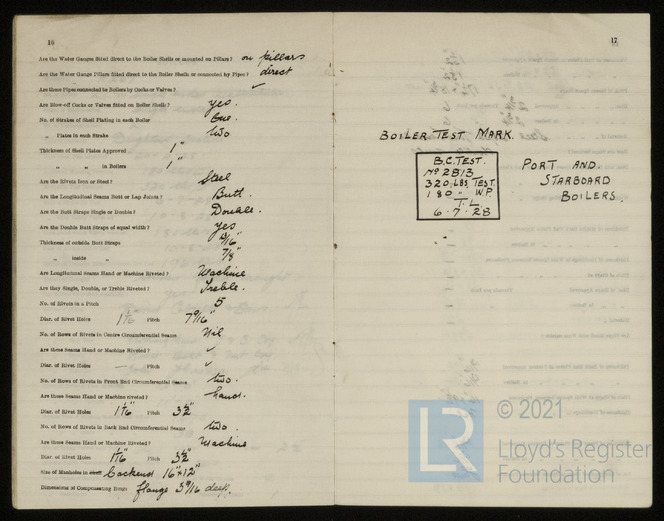 16
Are the Water Gauges fitted direct to the Boiler Shells or mounted on Pillars? on pillars
Are the Water Gauge Pillars fitted direct to the Boiler Shells or connected by Pipes? direct
Are these Pipes connected to Boilers by Cocks or Valves? ✓
Are Blow-off Cocks or Valves fitted on Boiler Shells? yes.
No. of Strakes of Shell Plating in each Boiler One.
„ Plates in each Strake two
Thickness of Shell Plates Approved 1"
„ „ in Boilers 1"
Are the Rivets Iron or Steel? Steel
Are the Longitudinal Seams Butt or Lap Joints? Butt.
Are the Butt Straps Single or Double? Double.
Are the Double Butt Straps of equal width? yes
Thickness of outside Butt Straps 13/16"
„ inside „ 7/8"
Are Longitudinal Seams Hand or Machine Riveted? Machine
Are they Single, Double, or Treble Riveted? Treble.
No. of Rivets in a Pitch 5
Diar. of Rivet Holes Pitch 7 9/16"
No. of Rows of Rivets in Centre Circumferential Seams Nil
Are these Seams Hand or Machine Riveted? ✓
Diar. of Rivet Holes — Pitch ✓
No. of Rows of Rivets in Front End Circumferential Seams two.
Are these Seams Hand or Machine riveted? hand.
Diar. of Rivet Holes 1 1/16" Pitch 3 1/2"
No. of Rows of Rivets in Back End Circumferential Seams two.
Are these Seams Hand or Machine Riveted? Machine
Diar. of Rivet Holes 1 1/16" Pitch 3 1/2"
Size of Manholes in Backend 16"x12"
Dimensions of Compensating Rings flange 3 9/16 deep.
17
BOILER TEST MARK.
B.C. TEST.
No 2813
320 LBS TEST.
180 „ W.P.
T.L.
6.7.28
PORT AND
STARBOARD
BOILERS.
LR
© 2021
Lloyd's Register
Foundation